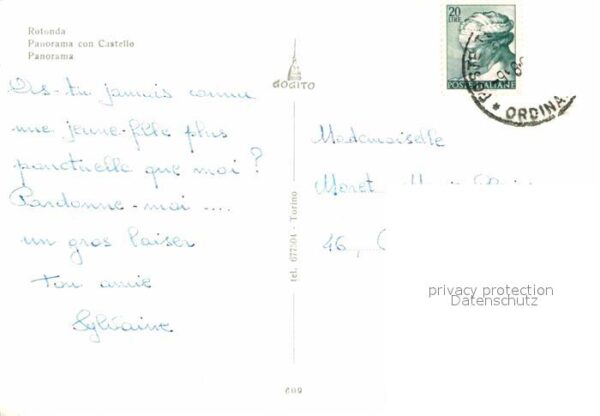 Rotonda
Panorama con Castello
Panorama
As-tu jamais connu
une jeune-fille plus
ponctuelle que moi ?
Pardonne-moi ....
un gros baiser
Ton amie
Sylviane
DOGITO
tel. 677304 - Torino
609
20
LIRE
POSTE ITALIANE
POSTE
ORDINA
Mademoiselle
Moret
46,
privacy protection
Datenschutz